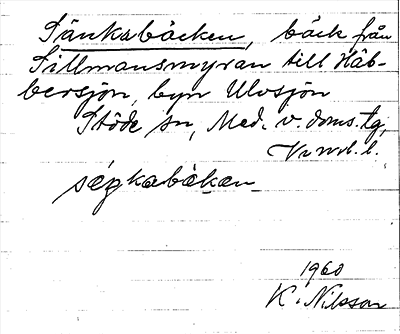 Sänksbäcken, bäck från
Sillmansmyran till Häb-
bersjön, byn Ulvsjön
Stöde sn, Med. v. doms. tg,
Vrnl. l.
1960
K. Nilsson